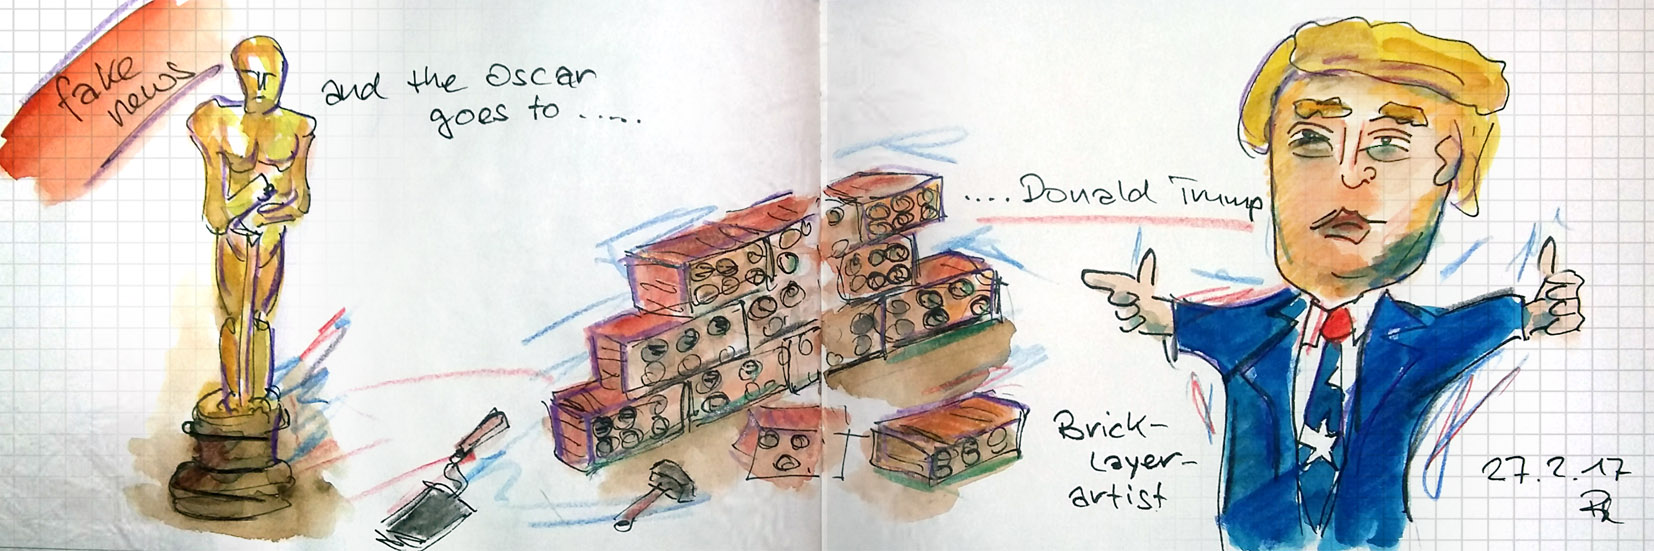 fake
news
and the Oscar
goes to .....
.... Donald Trump
Brick-
Layer-
artist
27.2.17